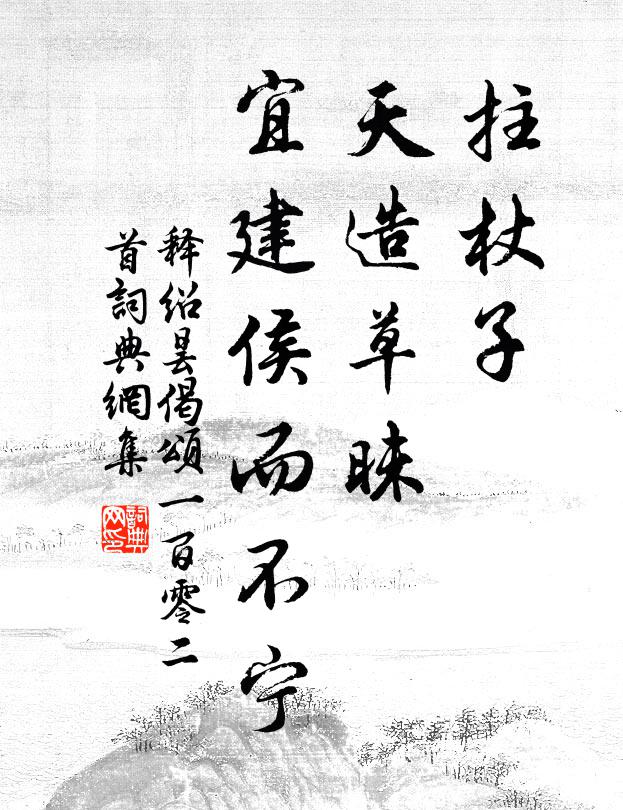 拄杖子
天造草昧
宜建侯而不宁
释绍昙偈颂一百零二
首詞典網集
詞典
网印